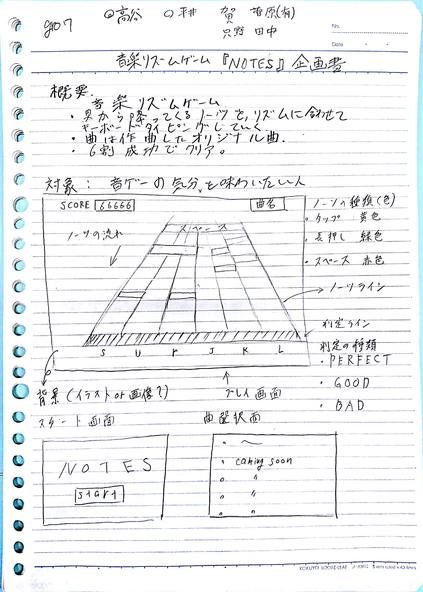 音楽リズムゲーム『NOTES』企画書
概要.
音楽リズムゲーム
・奥から降ってくるノーツを,リズムに合わせて
キーボードタイピングしていく.
・曲は作曲したオリジナル曲.
・6割成功でクリア。
対象: 音ゲーの気分を味わいたい人
SCORE 66666
曲名
ノーツの種類(色)
・タップ 黄色
・長押し 緑色
・スペース 赤色
スペース
ノーツの流れ
ノーツライン
判定ライン
J K L
判定の種類
・PERFECT
・GOOD
・BAD
背景(イラスト or 画像?)
プレイ画面
スタート画面
曲選択画面
NOTES
START
coming soon
〃
〃
No.
Date